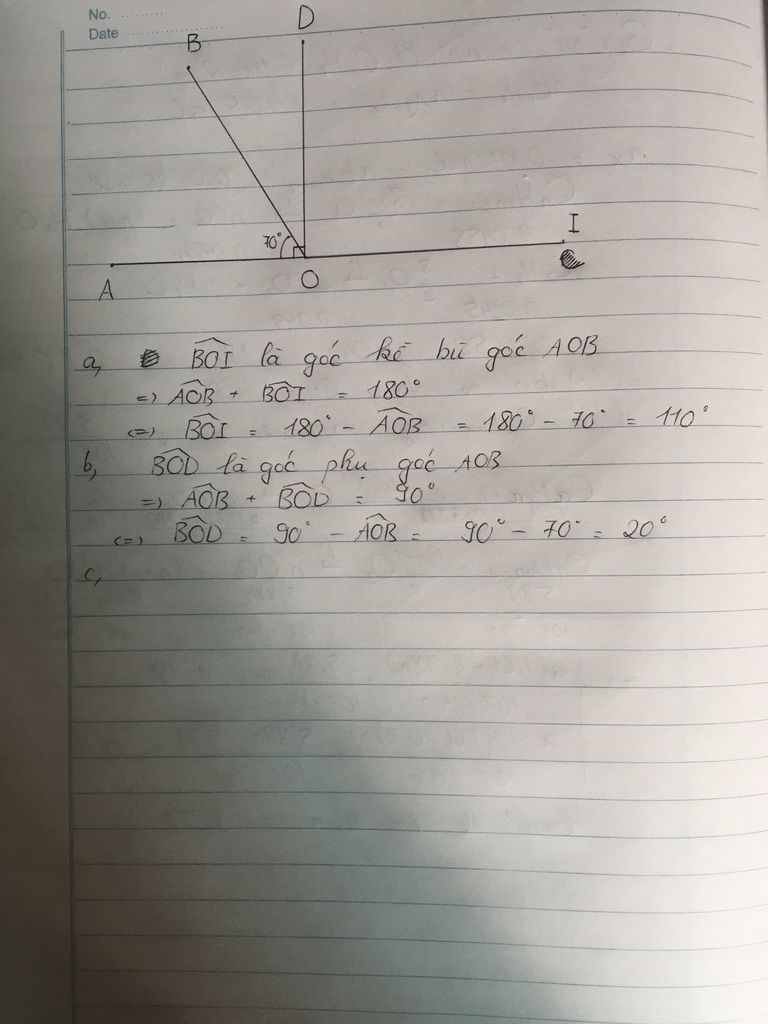 No.
Date
D
B
70°
I
A
O
a, BOI là góc kề bù góc AOB
=> AOB + BOI = 180°
<=> BOI = 180° - AOB = 180° - 70° = 110°
b, BOD là góc phụ góc AOB
=> AOB + BOD = 90°
<=> BOD = 90° - AOB = 90° - 70° = 20°
c,